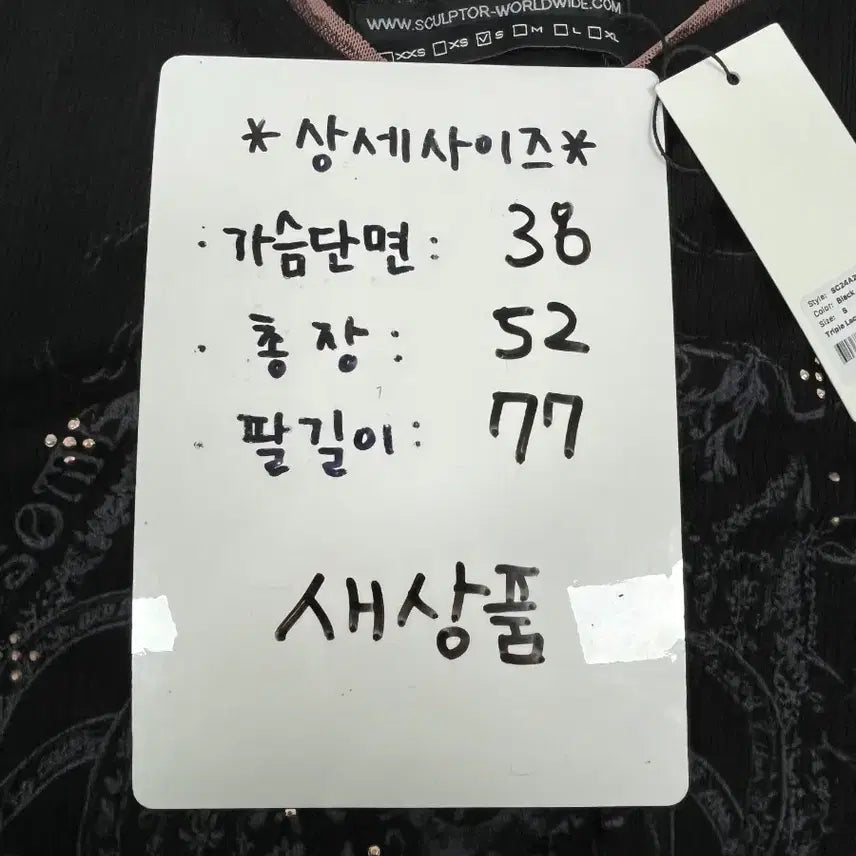 WWW.SCULPTOR-WORLDWIDE.COM
XXS XS S M L XL
*상세사이즈*
· 가슴단면 : 38
· 총장 : 52
· 팔길이 : 77
새상품
Style: SC24A
Color: Black
Size: S
Triple Lac